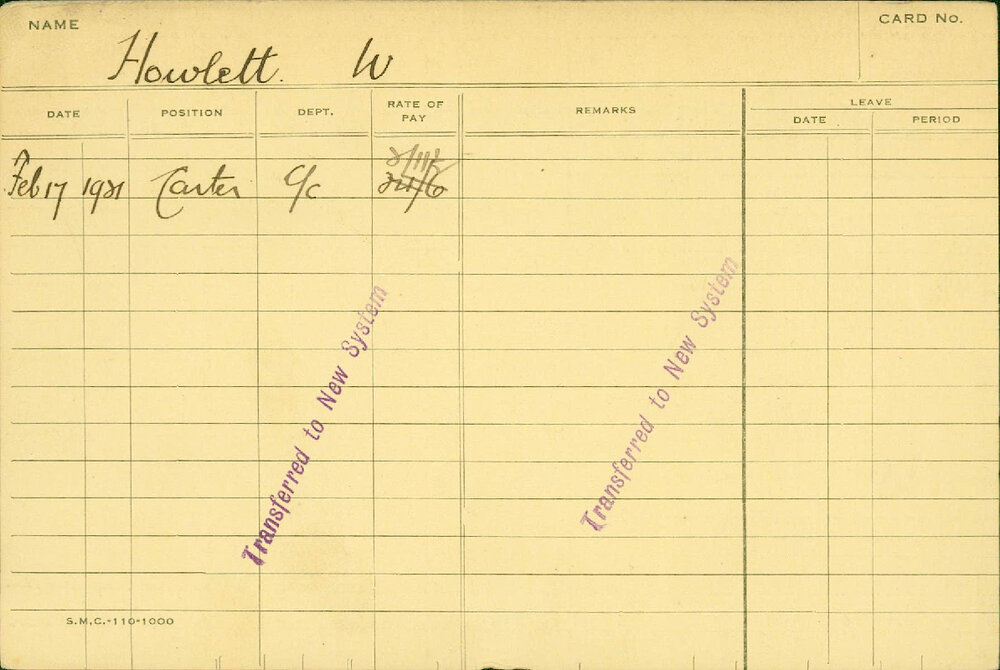 NAME
CARD No.
Howlett. W
DATE POSITION DEPT. RATE OF PAY REMARKS LEAVE
DATE PERIOD
Feb 17 1921 Carter C/C
Transferred to New System
Transferred to New System
S.M.C.-110-1000